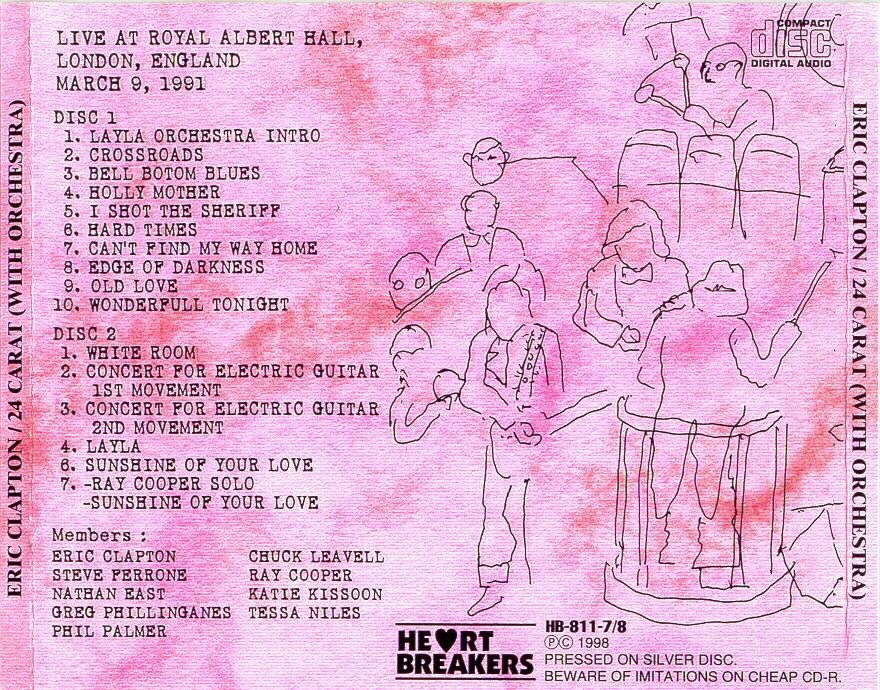 ERIC CLAPTON / 24 CARAT (WITH ORCHESTRA)
LIVE AT ROYAL ALBERT HALL,
LONDON, ENGLAND
MARCH 9, 1991
DISC 1
1. LAYLA ORCHESTRA INTRO
2. CROSSROADS
3. BELL BOTOM BLUES
4. HOLLY MOTHER
5. I SHOT THE SHERIFF
6. HARD TIMES
7. CAN'T FIND MY WAY HOME
8. EDGE OF DARKNESS
9. OLD LOVE
10. WONDERFULL TONIGHT
DISC 2
1. WHITE ROOM
2. CONCERT FOR ELECTRIC GUITAR
1ST MOVEMENT
3. CONCERT FOR ELECTRIC GUITAR
2ND MOVEMENT
4. LAYLA
6. SUNSHINE OF YOUR LOVE
7. -RAY COOPER SOLO
-SUNSHINE OF YOUR LOVE
Members :
ERIC CLAPTON CHUCK LEAVELL
STEVE FERRONE RAY COOPER
NATHAN EAST KATIE KISSOON
GREG PHILLINGANES TESSA NILES
PHIL PALMER
COMPACT
disc
DIGITAL AUDIO
HE♥RT
BREAKERS
HB-811-7/8
ⓅⒸ 1998
PRESSED ON SILVER DISC.
BEWARE OF IMITATIONS ON CHEAP CD-R.
ERIC CLAPTON / 24 CARAT (WITH ORCHESTRA)